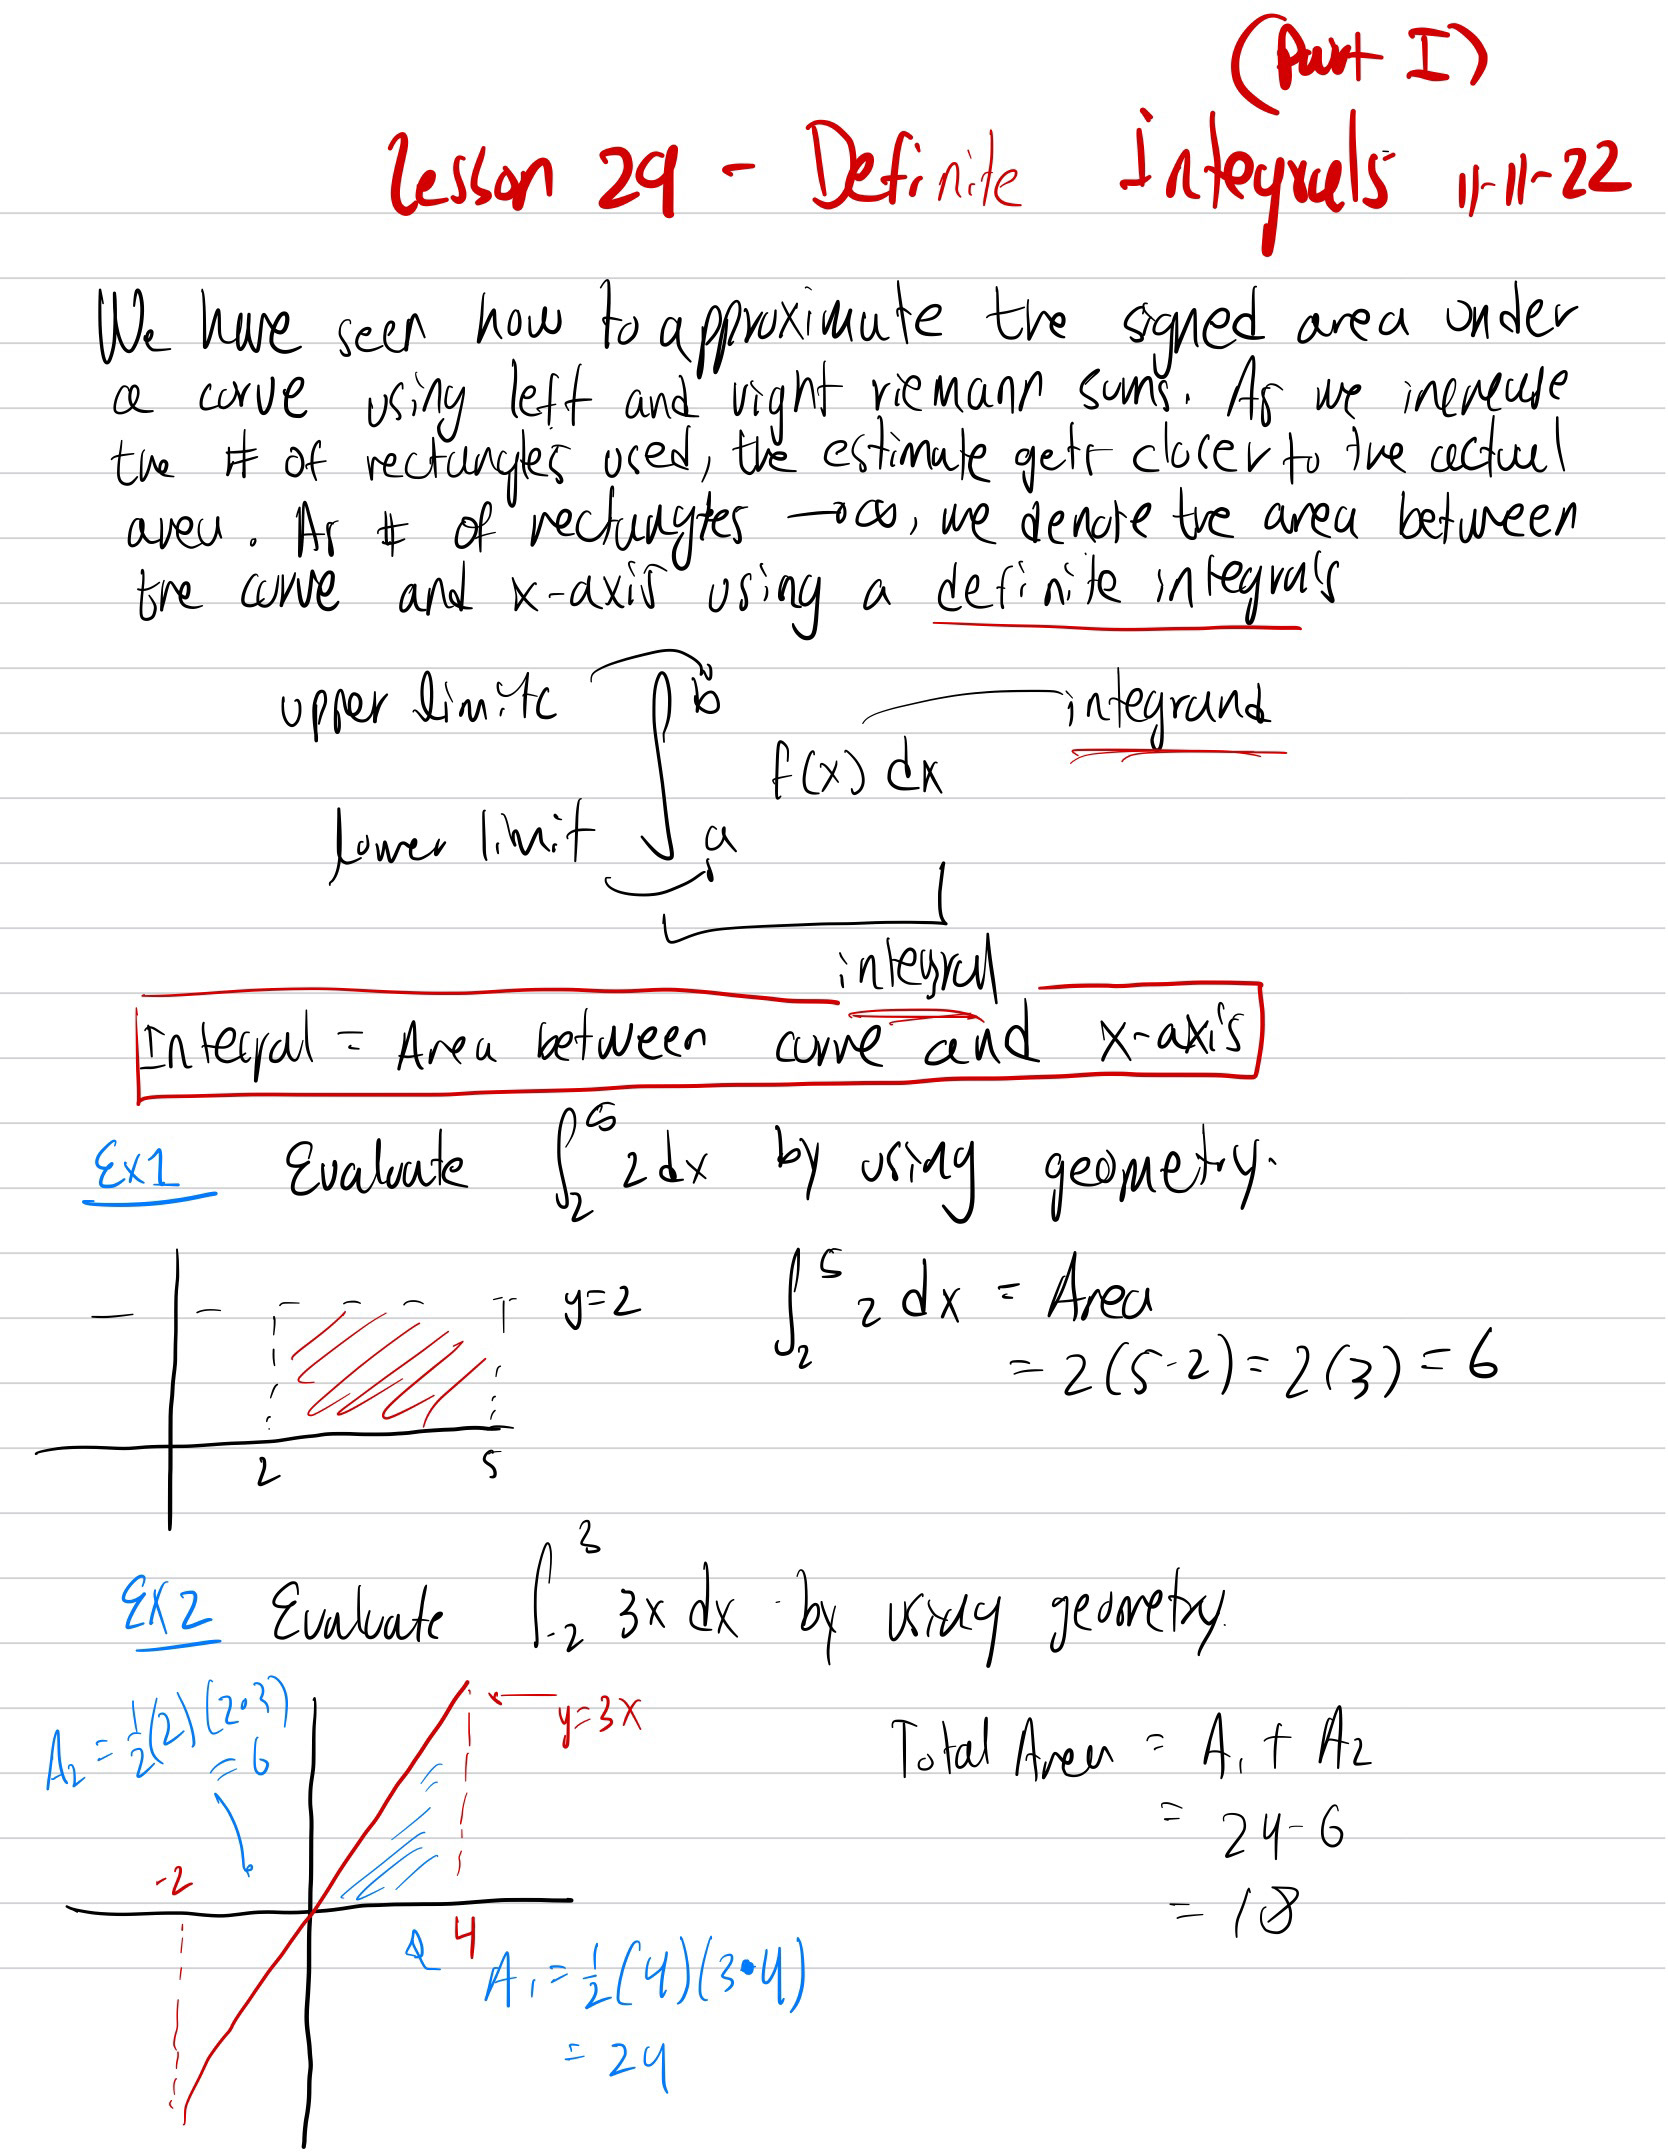 (Part I)
Lesson 29 - Definite Integrals 11-11-22
We have seen how to approximate the signed area under
a curve using left and right riemann sums. As we increase
the # of rectangles used, the estimate gets closer to the actual
area. As # of rectangles →∞, we denote the area between
the curve and x-axis using a definite integrals
upper limits
∫_a^b f(x) dx
integrand
lower limit
integral
Integral = Area between curve and x-axis
Ex1 Evaluate ∫_2^5 2 dx by using geometry.
y=2
2 5
∫_2^5 2 dx = Area
= 2(5-2) = 2(3) = 6
Ex2 Evaluate ∫_-2^3 3x dx by using geometry.
A₂ = ½(2)(2•3)
= 6
y=3x
-2
4
A₁ = ½(4)(3•4)
= 24
Total Area = A₁ + A₂
= 24-6
= 18